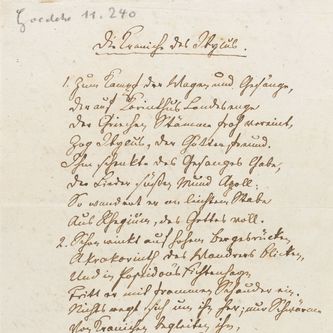 Goedeke 11. 240
Die Kraniche des Ibykus.
1. Zum Kampf der Wagen und Gesänge,
der auf Corinthus Landesenge
der Griechen Stämme froh vereint,
Zog Ibykus, der Götterfreund.
Ihm schenkte des Gesanges Gabe,
der Lieder süßen Mund Apoll;
So wandert er an leichtem Stabe
Aus Rhegium, des Gottes voll.
2. Schon winkt auf hohem Bergesrücken
Akrokorinth des Wandrers Blicken,
Und in Poseidons Fichtenhayn
Tritt er mit frommem Schauder ein.
Nichts regt sich um ihn her; nur Schwärme
Von Kranichen begleiten ihn,